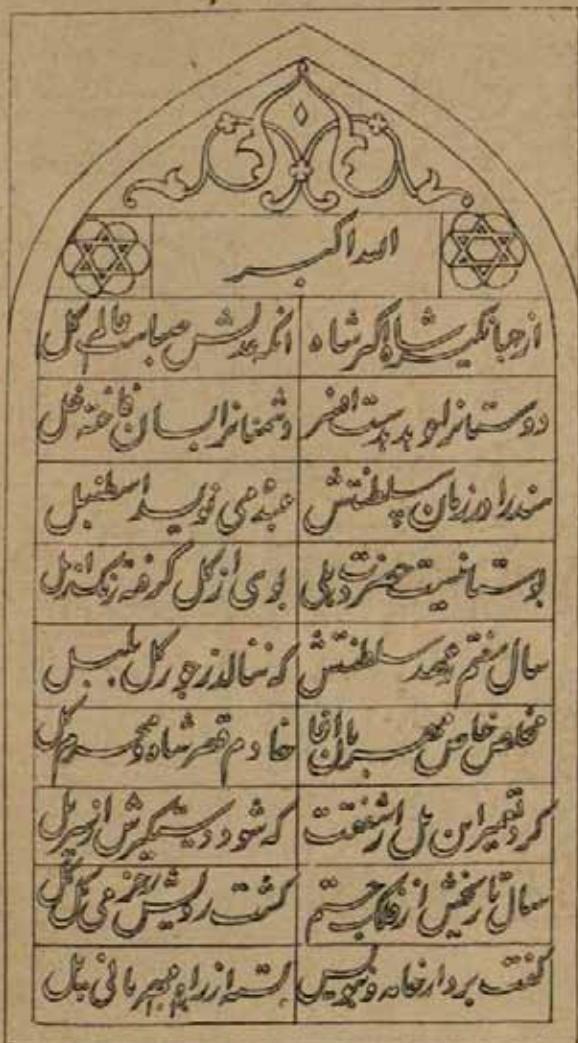 الله اکبر
از جهانگیر شاه اکبر شاه انکه عدلش صباست عالم گل
دوستانرا بود بدست افسر دشمنانرا بسان فاخته غل
هند را در زمان سلطنتش عبده می نویسد اسطنبل
بوستانیست حضرت دهلی بوی از گل گرفته رنگ از مل
سال هفتم ز عهد سلطنتش که ننالد ز جور گل بلبل
مخلص خاص مهربان اغا خادم قصر شاه و محرم کل
کرد تعمیر این پل از شفقت که شود دستگیرش از سر پل
سال تاریخش از فلک جستم گشت رویش ز خرمی گل گل
گفت بردار خامه و بنویس از راه مهربانی پل